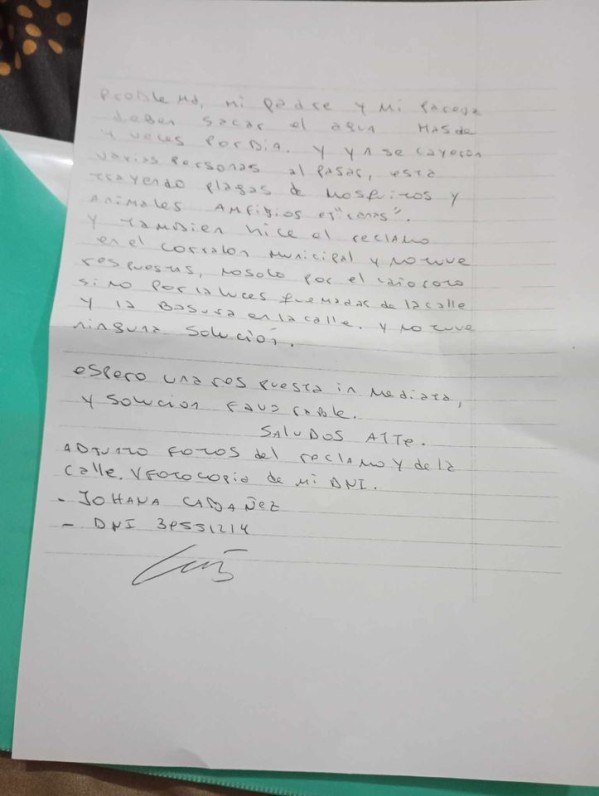 problema, mi padre y mi pareja
deben sacar el agua mas de
4 veces por dia. y ya se cayeron
varias personas al pasar, esta
trayendo plagas de mosquitos y
animales amfibios es"
y tambien hice el reclamo
en el corralon municipal y no tuve
respuestas, no solo por el
si no por la luces quemadas de la calle
y la basura en la calle. y no tuve
ninguna solucion.
espero una respuesta inmediata,
y solucion favorable.
Saludos Atte.
Adjunto fotos del reclamo y de la
calle. y fotocopia de mi DNI.
- JOHANA
- DNI